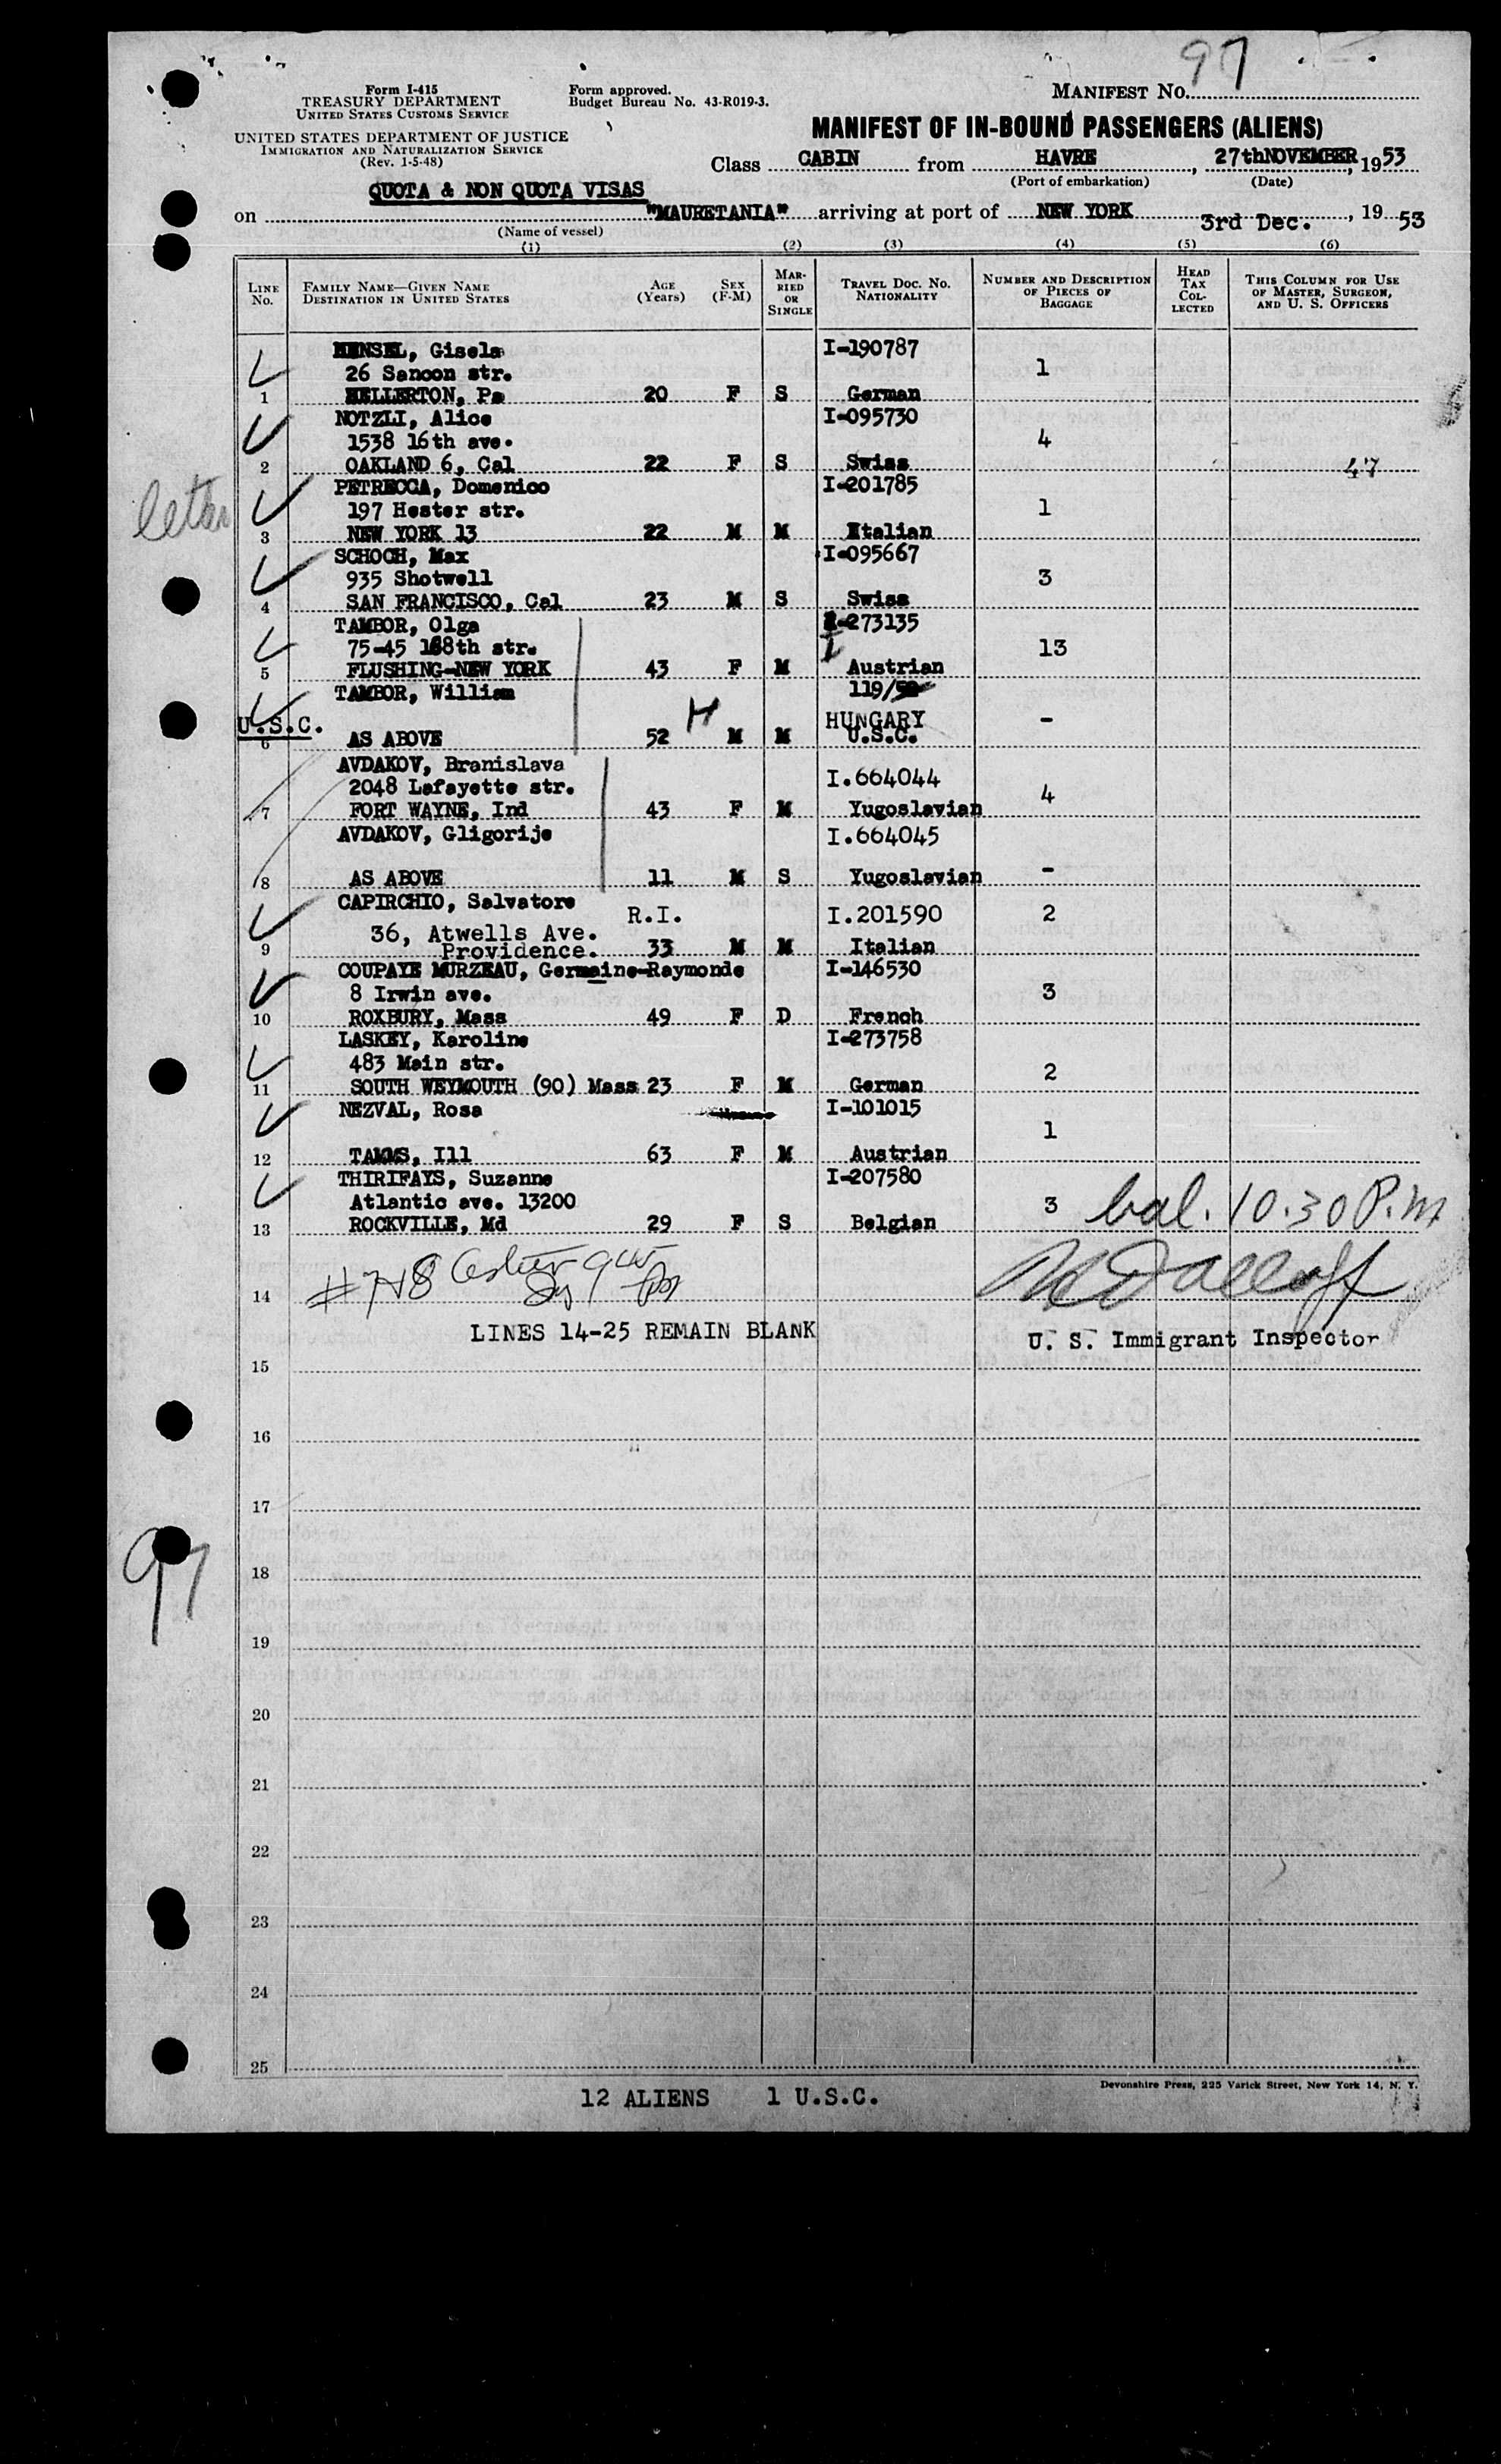 97
Form I-415
TREASURY DEPARTMENT
UNITED STATES CUSTOMS SERVICE
UNITED STATES DEPARTMENT OF JUSTICE
IMMIGRATION AND NATURALIZATION SERVICE
(Rev. 1-5-48)
Form approved.
Budget Bureau No. 43-R019-3.
MANIFEST No.
MANIFEST OF IN-BOUND PASSENGERS (ALIENS)
Class CABIN from HAVRE, 27th NOVEMBER, 1953
(Port of embarkation) (Date)
QUOTA & NON QUOTA VISAS
on "MAURETANIA" arriving at port of NEW YORK 3rd Dec., 1953
(Name of vessel)
(1) (2) (3) (4) (5) (6)
LINE No. FAMILY NAME—GIVEN NAME DESTINATION IN UNITED STATES AGE (Years) SEX (F-M) MARRIED OR SINGLE TRAVEL DOC. NO. NATIONALITY NUMBER AND DESCRIPTION OF PIECES OF BAGGAGE HEAD TAX COLLECTED THIS COLUMN FOR USE OF MASTER, SURGEON, AND U. S. OFFICERS
HENSEL, Gisela I-190787
26 Sancon str. 1
1 HELLERTON, Pa 20 F S German
NOTZLI, Alice I-095730
1538 16th ave. 4
2 OAKLAND 6, Cal 22 F S Swiss 47
PETRECCA, Domenico I-201785
letter 197 Hester str. 1
3 NEW YORK 13 22 M M Italian
SCHOCH, Max I-095667
935 Shotwell 3
4 SAN FRANCISCO, Cal 23 M S Swiss
TAMBOR, Olga I-273135
75-45 168th str. I 13
5 FLUSHING-NEW YORK 43 F M Austrian
TAMBOR, William 119/
U.S.C. H HUNGARY -
6 AS ABOVE 52 M M U.S.C.
AVDAKOV, Branislava I.664044
2048 Lafayette str. 4
7 FORT WAYNE, Ind 43 F M Yugoslavian
AVDAKOV, Gligorije I.664045
-
8 AS ABOVE 11 M S Yugoslavian
CAPIRCHIO, Salvatore R.I. I.201590 2
36, Atwells Ave.
9 Providence. 33 M M Italian
COUPAYE MURZEAU, Germaine-Raymonde I-146530
8 Irwin ave. 3
10 ROXBURY, Mass 49 F D French
LASKEY, Karoline I-273758
483 Main str. 2
11 SOUTH WEYMOUTH (90) Mass 23 F M German
NEZVAL, Rosa I-101015
1
12 TAMMS, Ill 63 F M Austrian
THIRIFAYS, Suzanne I-207580
Atlantic ave. 13200 3 bal. 10.30 P.m
13 ROCKVILLE, Md 29 F S Belgian
#7+8
14
LINES 14-25 REMAIN BLANK
U. S. Immigrant Inspector
15
16
17
97
18
19
20
21
22
23
24
25
Devonshire Press, 225 Varick Street, New York 14, N. Y.
12 ALIENS 1 U.S.C.